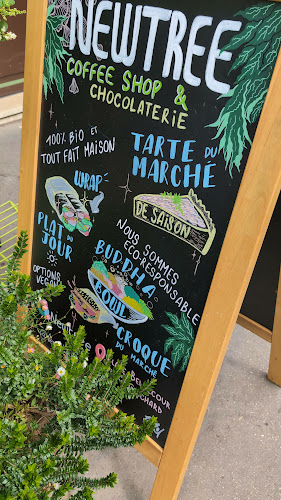 NEWTREE
COFFEE SHOP &
CHOCOLATERIE
100% BIO ET
TOUT FAIT MAISON
TARTE DU
MARCHÉ
DE SAISON
WRAP
PLAT
DU
JOUR
NOUS SOMMES
ECO-RESPONSABLE
BUDDHA
BOWL
OPTIONS
CROQUE
DU MARCHÉ
COUR